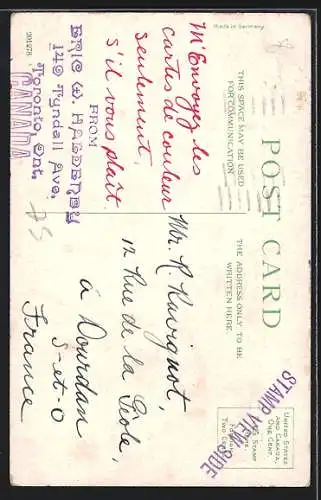 Made in Germany
201278
POST CARD
THIS SPACE MAY BE USED
FOR COMMUNICATION
THE ADDRESS ONLY TO BE
WRITTEN HERE.
UNITED STATES
AND CANADA,
ONE CENT.
STAMP
FOREIGN
TWO CENTS
STAMP VIEW SIDE
M'Envoyez les
cartes de couleur
seulement,
s'il vous plaît.
FROM
ERIC W. 
149 Tyndall Ave.
Toronto, Ont.
CANADA
Mr. R. Ravignot,
12 Rue de la Geôle,
à Dourdan
S-et-O
France